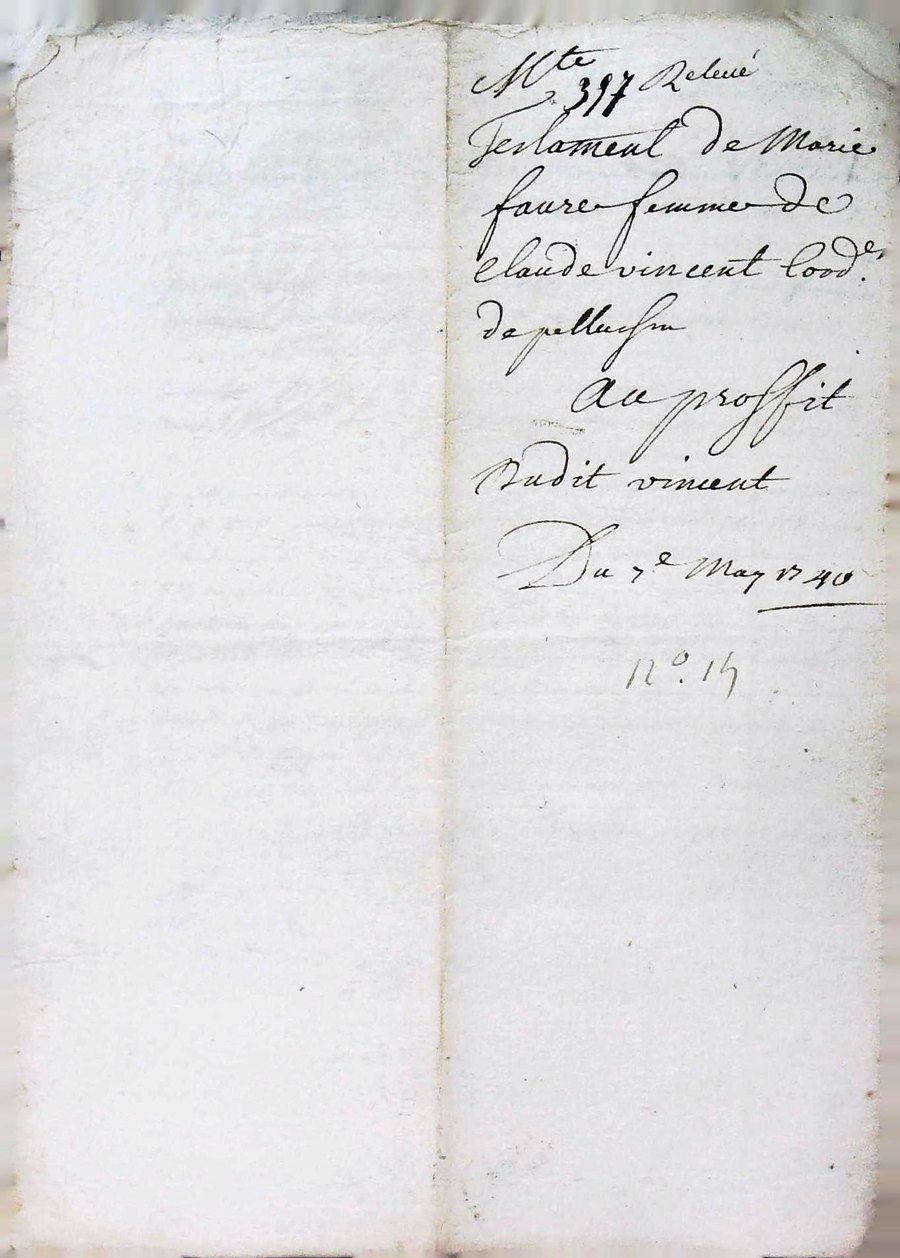 Mte 397 Releué
Testament de Marie
faure femme de
Claude vincent Cord.e
de pellussin
Au proffit
Dudit vincent
Du 7e May 1740
No. 14